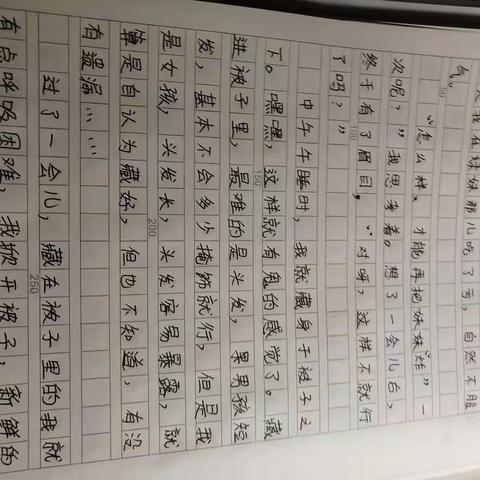 天我在妹妹那儿吃了亏,自然不服
气。
“怎么样,才能再把妹妹“炸”一
次呢?”我思考着。想了一会儿后,
终于有了眉目,“对呀,这样不就行
了吗?”
100
中午午睡时,我就藏身于被子之
下。嘿嘿,这样就有鬼的感觉了。藏
150
进被子里,最难的是头发,果男孩短
发,基本不会多少掩饰就行,但是我
是女孩,头发长,头发容易暴露,就
200
算是自认为藏好,但也不知道,有没
有遗漏……
过了一会儿,藏在被子里的我就
250
有点呼吸困难,我掀开被子,新鲜的